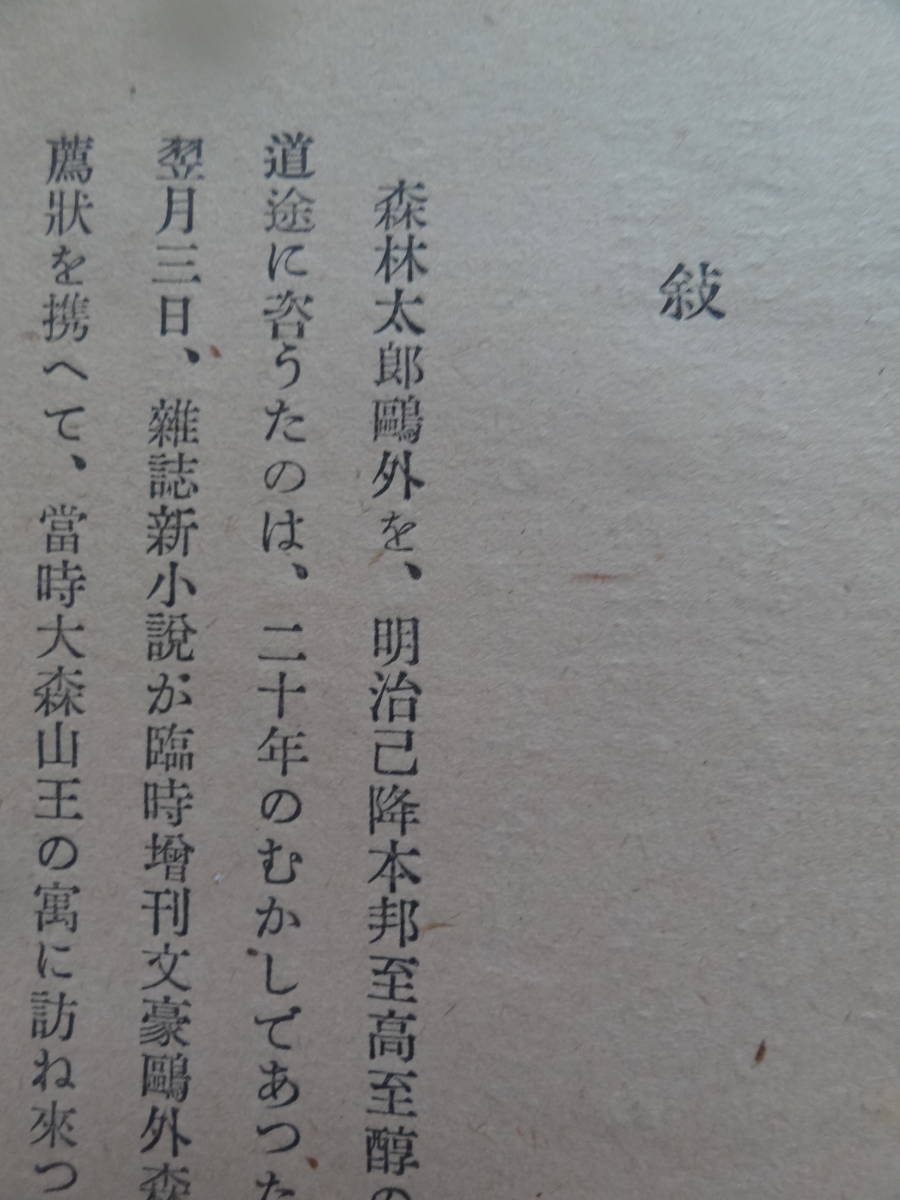 敍
森林太郎鷗外を、明治己降本邦至高至醇の
道途に咨うたのは、二十年のむかしであつた
翌月三日、雜誌新小說が臨時增刊文豪鷗外森
薦狀を携へて、當時大森山王の寓に訪ね來つ